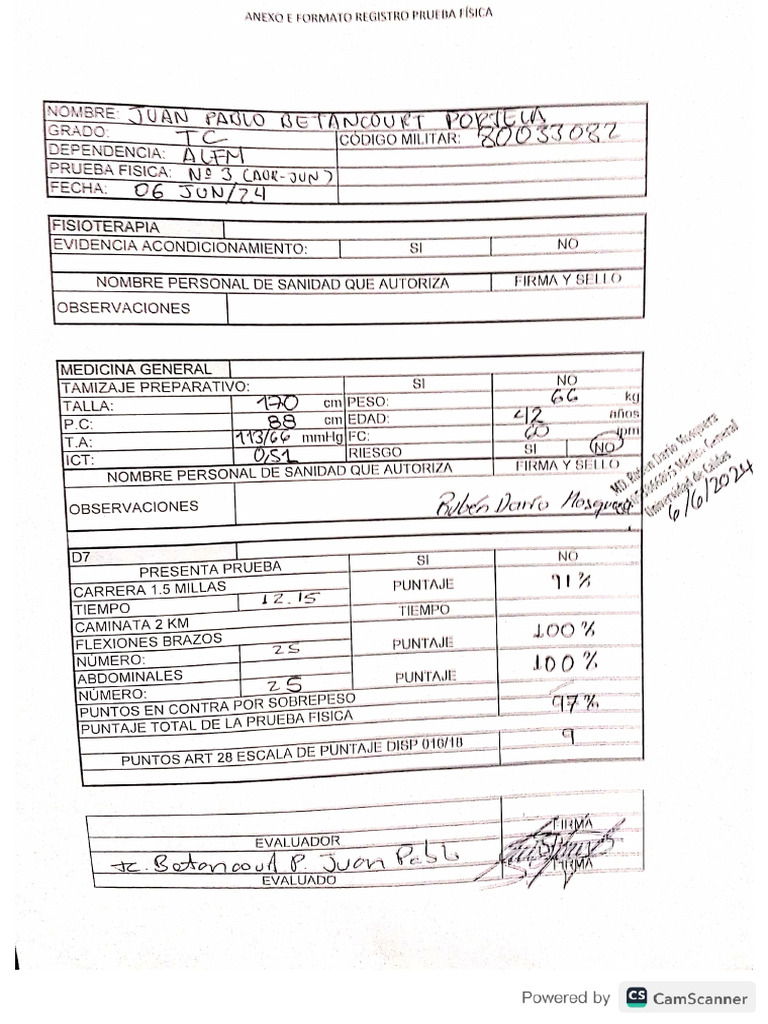 ANEXO E FORMATO REGISTRO PRUEBA FÍSICA
NOMBRE: JUAN PABLO BETANCOURT PORTELA
GRADO: TC CÓDIGO MILITAR: 80033082
DEPENDENCIA: ALFM
PRUEBA FISICA: Nº 3 (ABR-JUN)
FECHA: 06 JUN/24
FISIOTERAPIA
EVIDENCIA ACONDICIONAMIENTO: SI NO
NOMBRE PERSONAL DE SANIDAD QUE AUTORIZA FIRMA Y SELLO
OBSERVACIONES
MEDICINA GENERAL
TAMIZAJE PREPARATIVO: SI NO
TALLA: 170 cm PESO: 66 kg
P.C: 88 cm EDAD: 42 años
T.A: 113/66 mmHg FC: 60 lpm
ICT: 0,51 RIESGO SI NO
NOMBRE PERSONAL DE SANIDAD QUE AUTORIZA FIRMA Y SELLO
OBSERVACIONES Rubén Darío Mosquera
MD. Rubén Darío Mosquera
Medico General
Universidad de Caldas
6/6/2024
D7
PRESENTA PRUEBA SI NO
CARRERA 1.5 MILLAS PUNTAJE 91%
TIEMPO 12.15 TIEMPO
CAMINATA 2 KM
FLEXIONES BRAZOS PUNTAJE 100%
NÚMERO: 25
ABDOMINALES PUNTAJE 100%
NÚMERO: 25
PUNTOS EN CONTRA POR SOBREPESO
PUNTAJE TOTAL DE LA PRUEBA FISICA 97%
PUNTOS ART 28 ESCALA DE PUNTAJE DISP 016/18 9
EVALUADOR FIRMA
Tc. Betancourt P. Juan Pablo
EVALUADO FIRMA
Powered by CS CamScanner